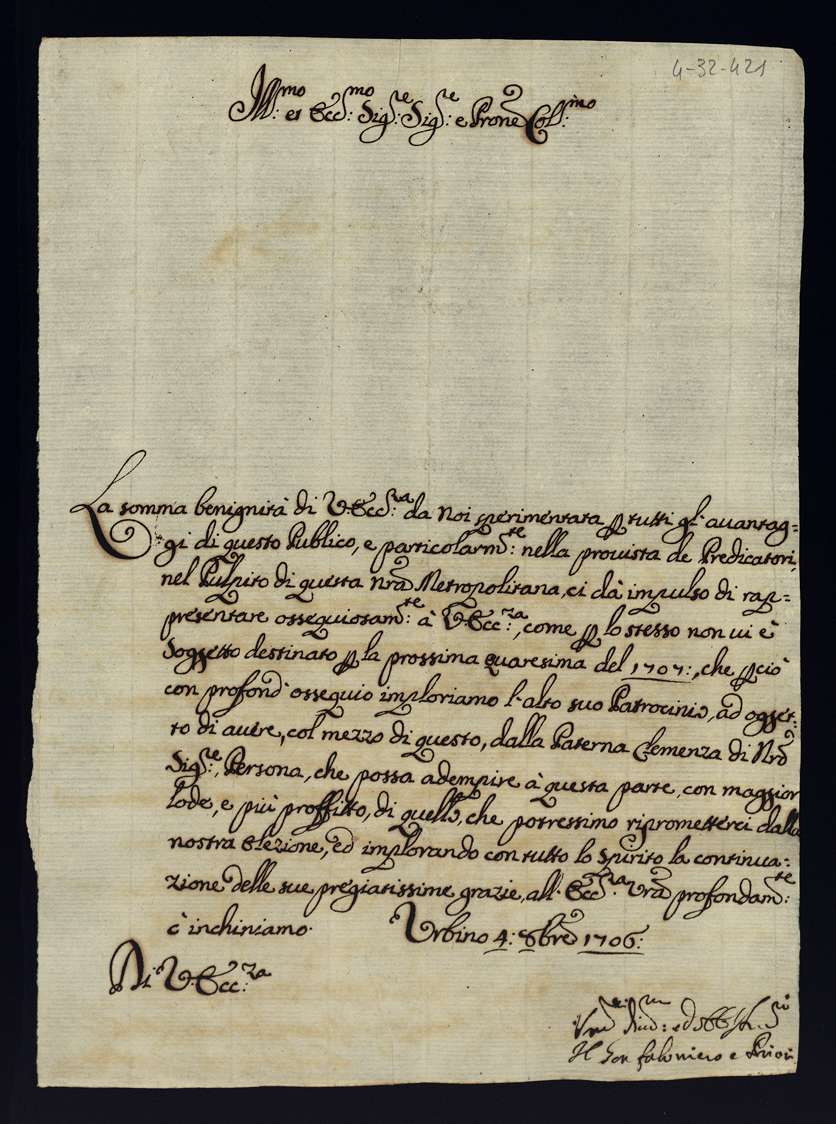 4-32-421
Ill:mo et Ecc:mo Sig:re Sig:re e Prone Coll:mo
La somma benignità di V. Ecc:za da Noi sperimentata p tutti gl'auantag=
gi di questo Publico, e particolarm:te nella prouista de Predicatori,
nel Pulpito di questa nra Metropolitana, ci dà impulso di rap=
presentare ossequiosam:te à V. Ecc:za, come p lo stesso non ui è
soggetto destinato p la prossima quaresima del 1707:, che pciò
con profond'ossequio imploriamo l'alto suo Patrocinio, ad ogget=
to di auere, col mezzo di questo, dalla Paterna Clemenza di Nro
Sig:re, Persona, che possa adempire à questa parte, con maggior
lode, e più proffitto, di quello, che potressimo riprometterci dalla
nostra elezione, ed implorando con tutto lo spirito la continua=
zione delle sue pregiatissime grazie, all'Ecc:za Vra profondam:te
c'inchiniamo. Urbino 4: 8bre 1706:
Di V. Ecc:za
Il Gonfaloniero e Priori